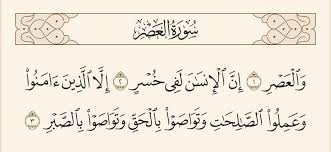 سُورَةُ العَصْرِ
وَٱلْعَصْرِ ١ إِنَّ ٱلْإِنسَٰنَ لَفِى خُسْرٍ ٢ إِلَّا ٱلَّذِينَ ءَامَنُوا۟
وَعَمِلُوا۟ ٱلصَّٰلِحَٰتِ وَتَوَاصَوْا۟ بِٱلْحَقِّ وَتَوَاصَوْا۟ بِٱلصَّبْرِ ٣